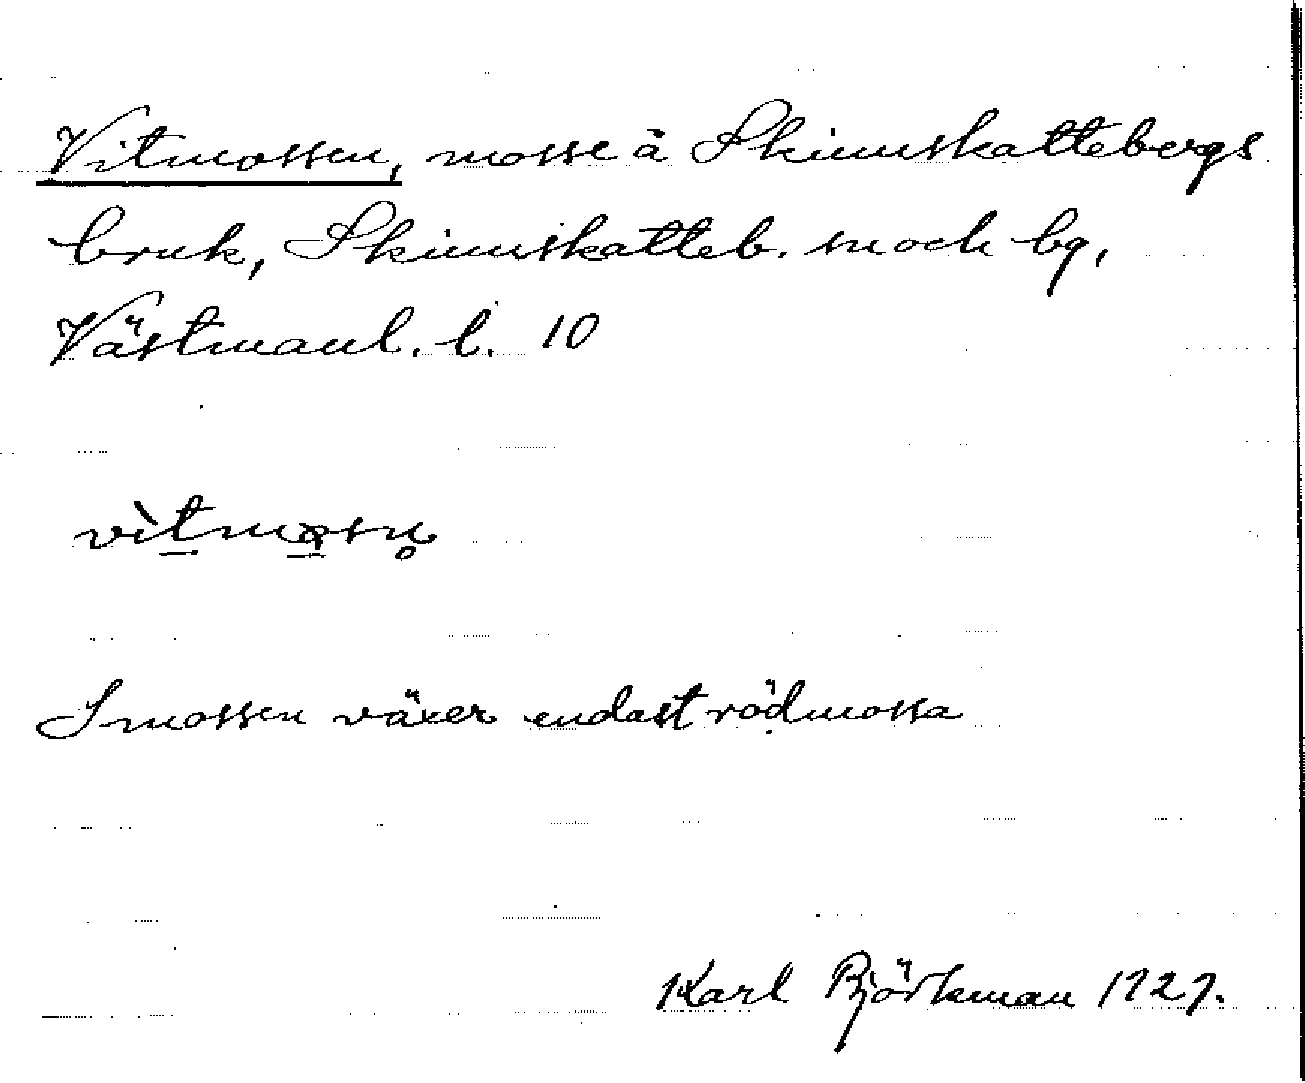 Vitmossen, mosse å Skinnskattebergs
bruk, Skinnskatteb. sn och bg,
Västmanl. l. 10
vi̬tmosn̥
I mossen växer endast rödmossa
Karl Björkman 1927.